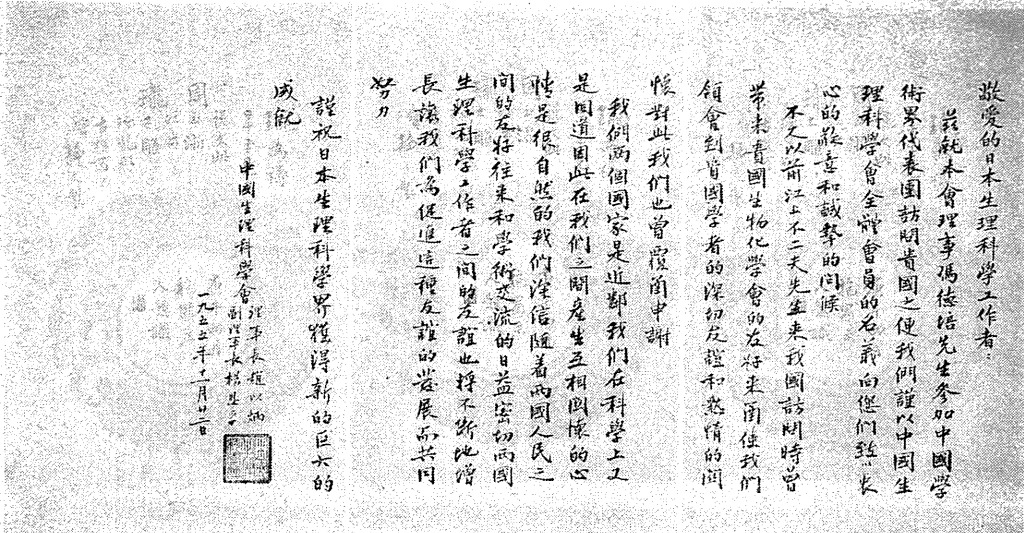 敬愛的日本生理科學工作者：
茲就本會理事馮德培先生參加中國學
術界代表團訪問貴國之便我們謹以中國生
理科學會全體會員的名義向您們致以衷
心的敬意和誠摯的問候
不久以前江上不二夫先生來我國訪問時曾
帶來貴國生物化學會的友好來函使我們
領會到貴國學者的深切友誼和熱情的關
懷對此我們也曾覆函申謝
我們兩個國家是近鄰我們在科學上又
是同道因此在我們之間產生互相關懷的心
情是很自然的我們深信隨着兩國人民之
間的友好往來和學術交流的日益密切兩國
生理科學工作者之間的友誼也將不斷地增
長讓我們為促進這種友誼的發展而共同
努力
謹祝日本生理科學界獲得新的巨大的
成就
中國生理科學會
理事長趙以炳
副理事長
一九五五年十二月廿一日